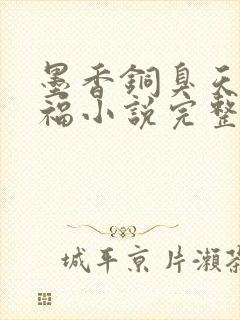 墨香銅臭天
福小說完整
城平京 片瀨茶